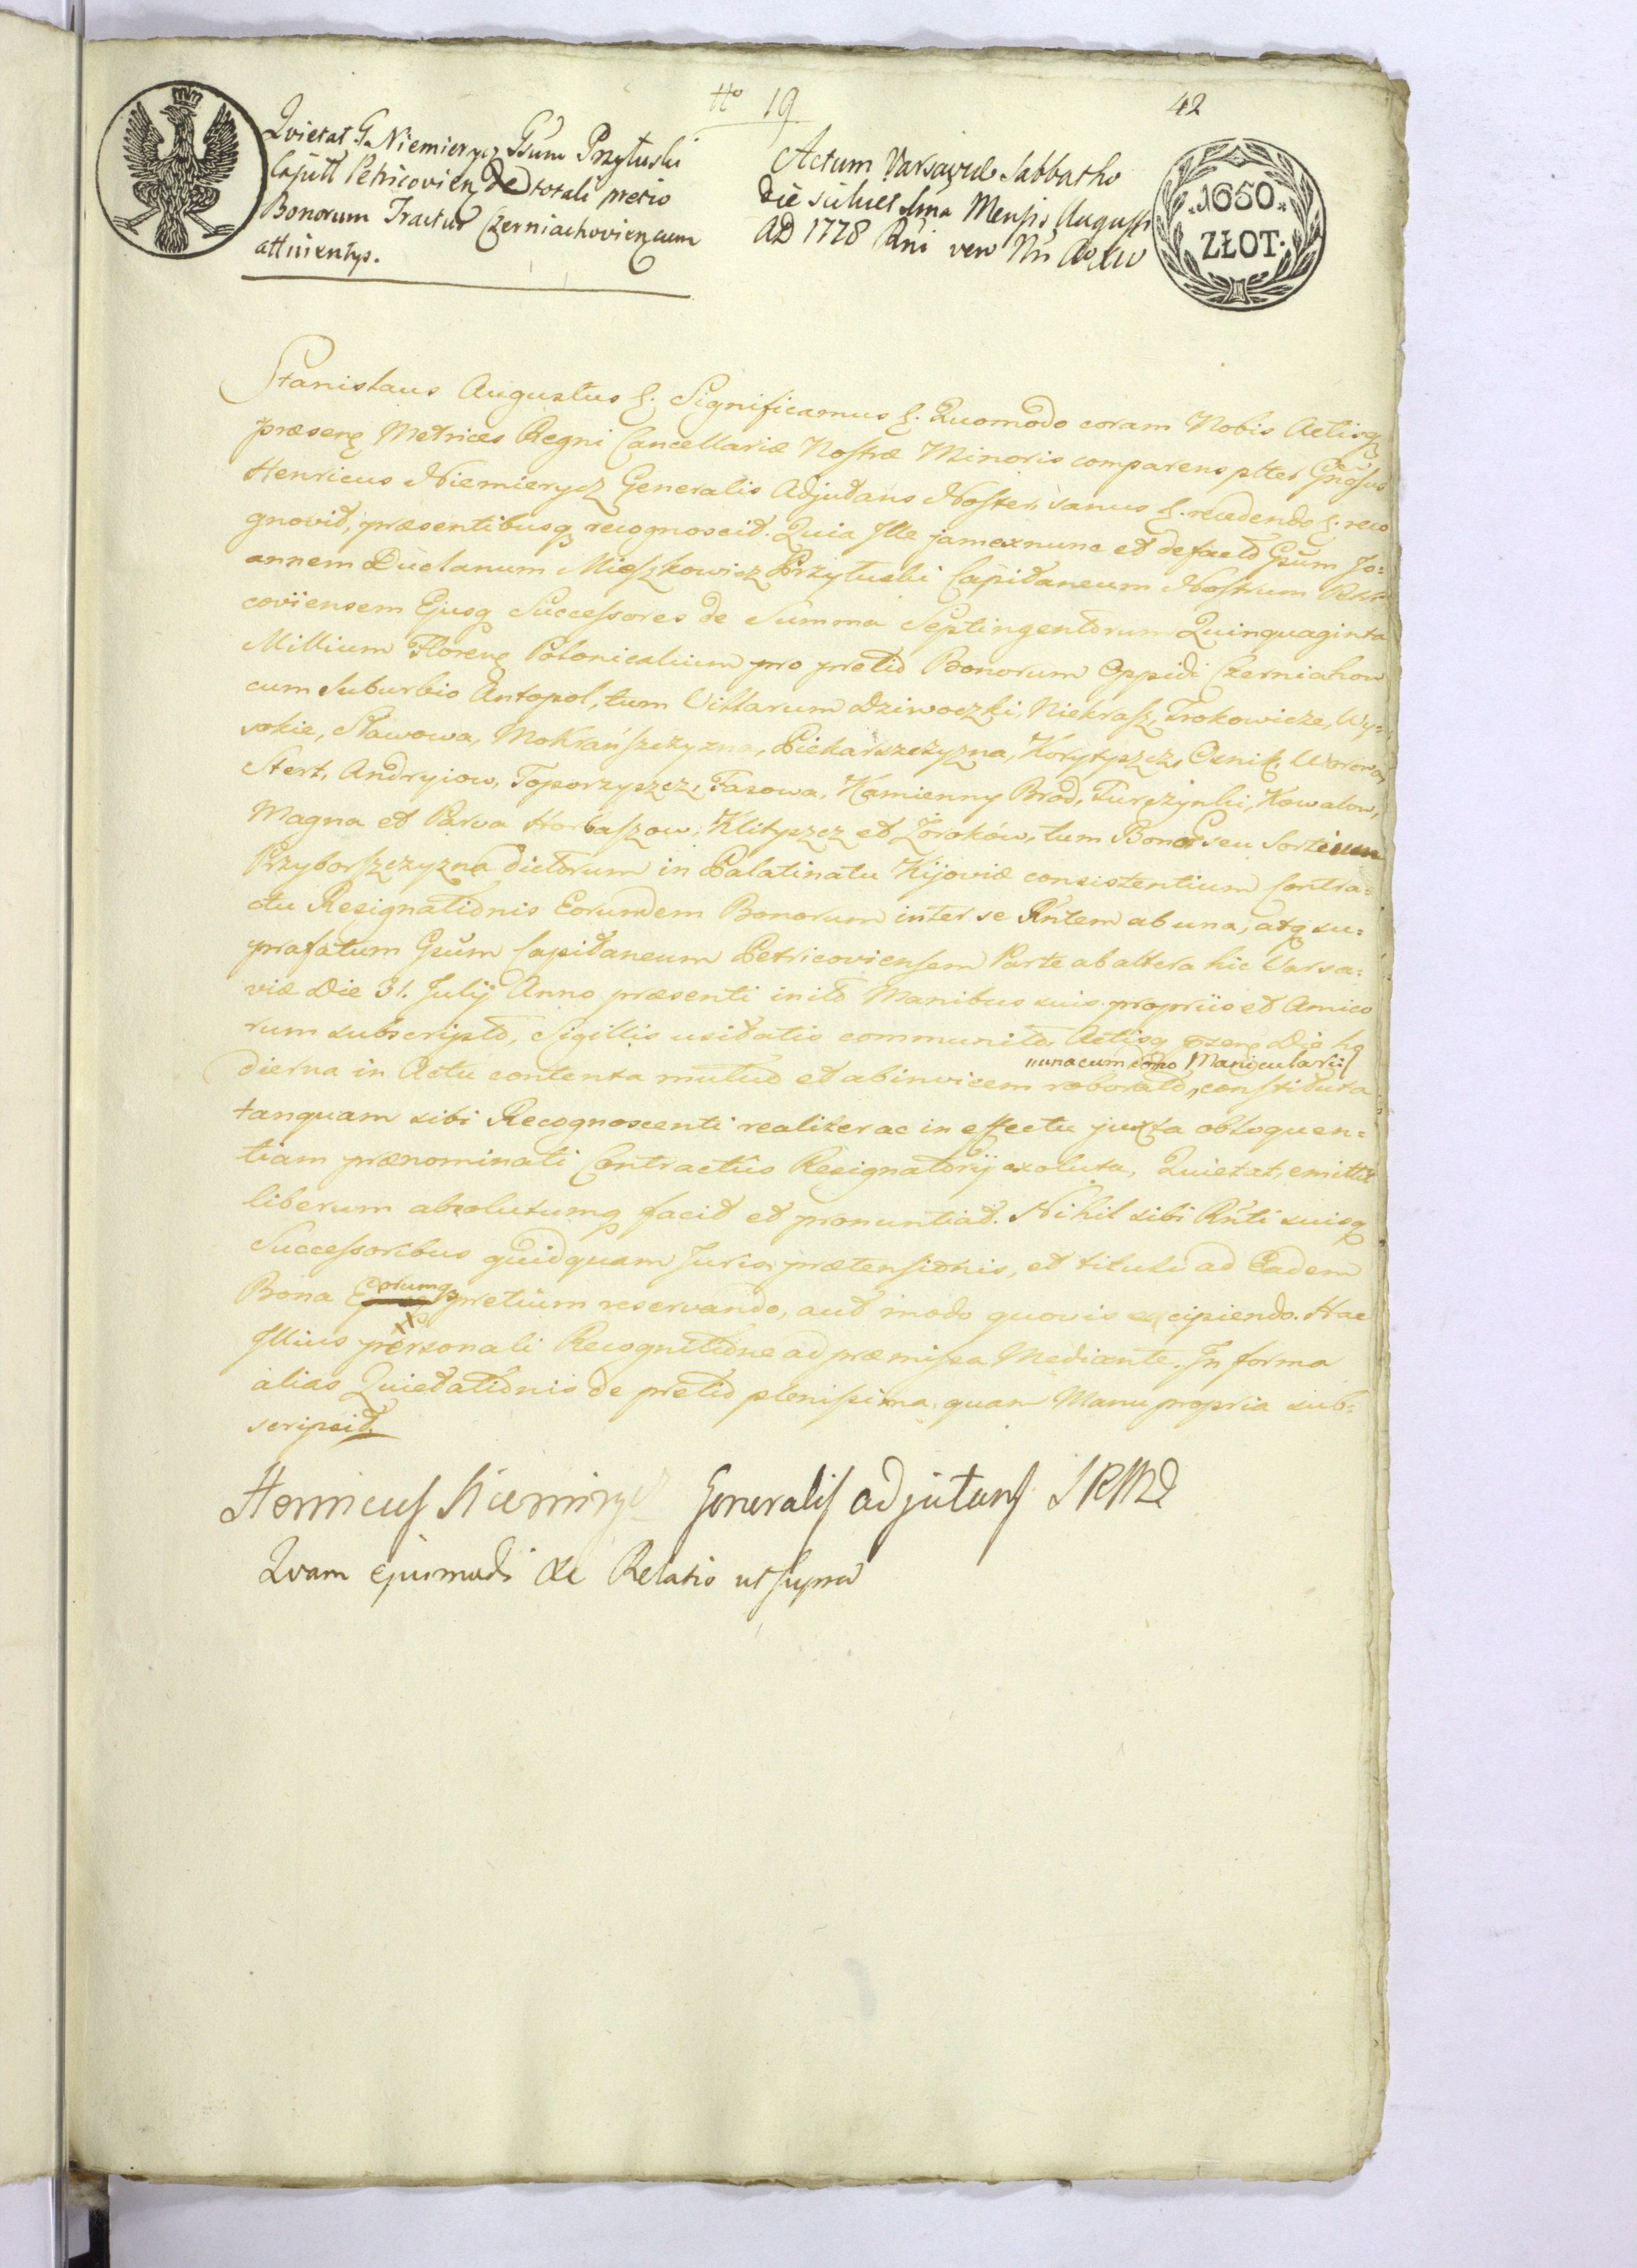 No 19
42
Quietat G. Niemierycz Gsum Przyłuski
Capitt Petricovien de totali pretio
Bonorum Tractus Czerniachovien cum
attinentys.
Actum Varsaviæ Sabbatho
Die silicet Mensis Augusti
AD 1778 Rni vero Nri
1650
ZŁOT.
Stanislaus Augustus &. Significamus &. Quomodo coram Nobis Actisq
præsens Metrices Regni Cancellariæ Nostræ Minoris comparens pltes Gnosus
Henricus Niemierycz Generalis Adjudans Noster, sanus &. recedendo &. reco
gnovit, præsentibusq recognoscit. Quia Ille jam ex nunc et de facto Gsum Jo=
annem Duclanum Mieszkowicz Przyłuski Capitaneum Nostrum Petri
coviensem Ejusq Successores de Summa Septingentorum Quinquaginta
Millium Floren Polonicalium pro pretio Bonorum Oppidi Czerniahow
cum Suburbio Antopol, tum Villarum Dziwoczki, Niekrasz, Trokowicze, Wy=
sokie, Sławowa, Mokrańszczyzna, Piekarszczyzna, Korytyszcz, Osnik, Worowa,
Stert, Andryiow, Toporzyszcz, Fasowa, Kamienny Brod, Turczynki, Kowalow,
Magna et Parva Horbaszow, Klityszcz et Zoroków, tum Bonor seu Sortium
Przyborszczyzna dictorum in Palatinatu Kijoviæ consistentium Contra=
ctu Resignationis Eorumdem Bonorum inter se Rntem ab una, atq su=
prafatum Gsum Capitaneum Petricoviensem Parte ab altera hic Varsa=
viæ Die 31. Julij Anno præsenti inito Manibus suis propriis et Amico
rum subscripto, Sigillis usitatis communito, Actisq pzens Die ho
dierna in Actu contenta mutuo et abinvicem roborato, constituta
unacum Manicularij
tanquam sibi Recognoscenti realiter ac in effectu juxta obloquen=
tiam prænominati Contractûs Resignatorij exoluta, Quietat, emittit
liberum absolutumq facit et pronuntiat. Nihil sibi Rnti suisq
Successoribus quidquam Juris, prætensionis, et tituli ad Eadem
Bona Eorumq pretium reservando, aut modo quovis excipiendo. Hac
Illius personali Recognitione ad præmissa Mediante. In forma
alias Quietationis de pretio plenissima, quam Manu propria sub=
scripsit.
Henricus Niemirycz Generalis adjutans
Quam ejusmodi &c Relatio ut supra